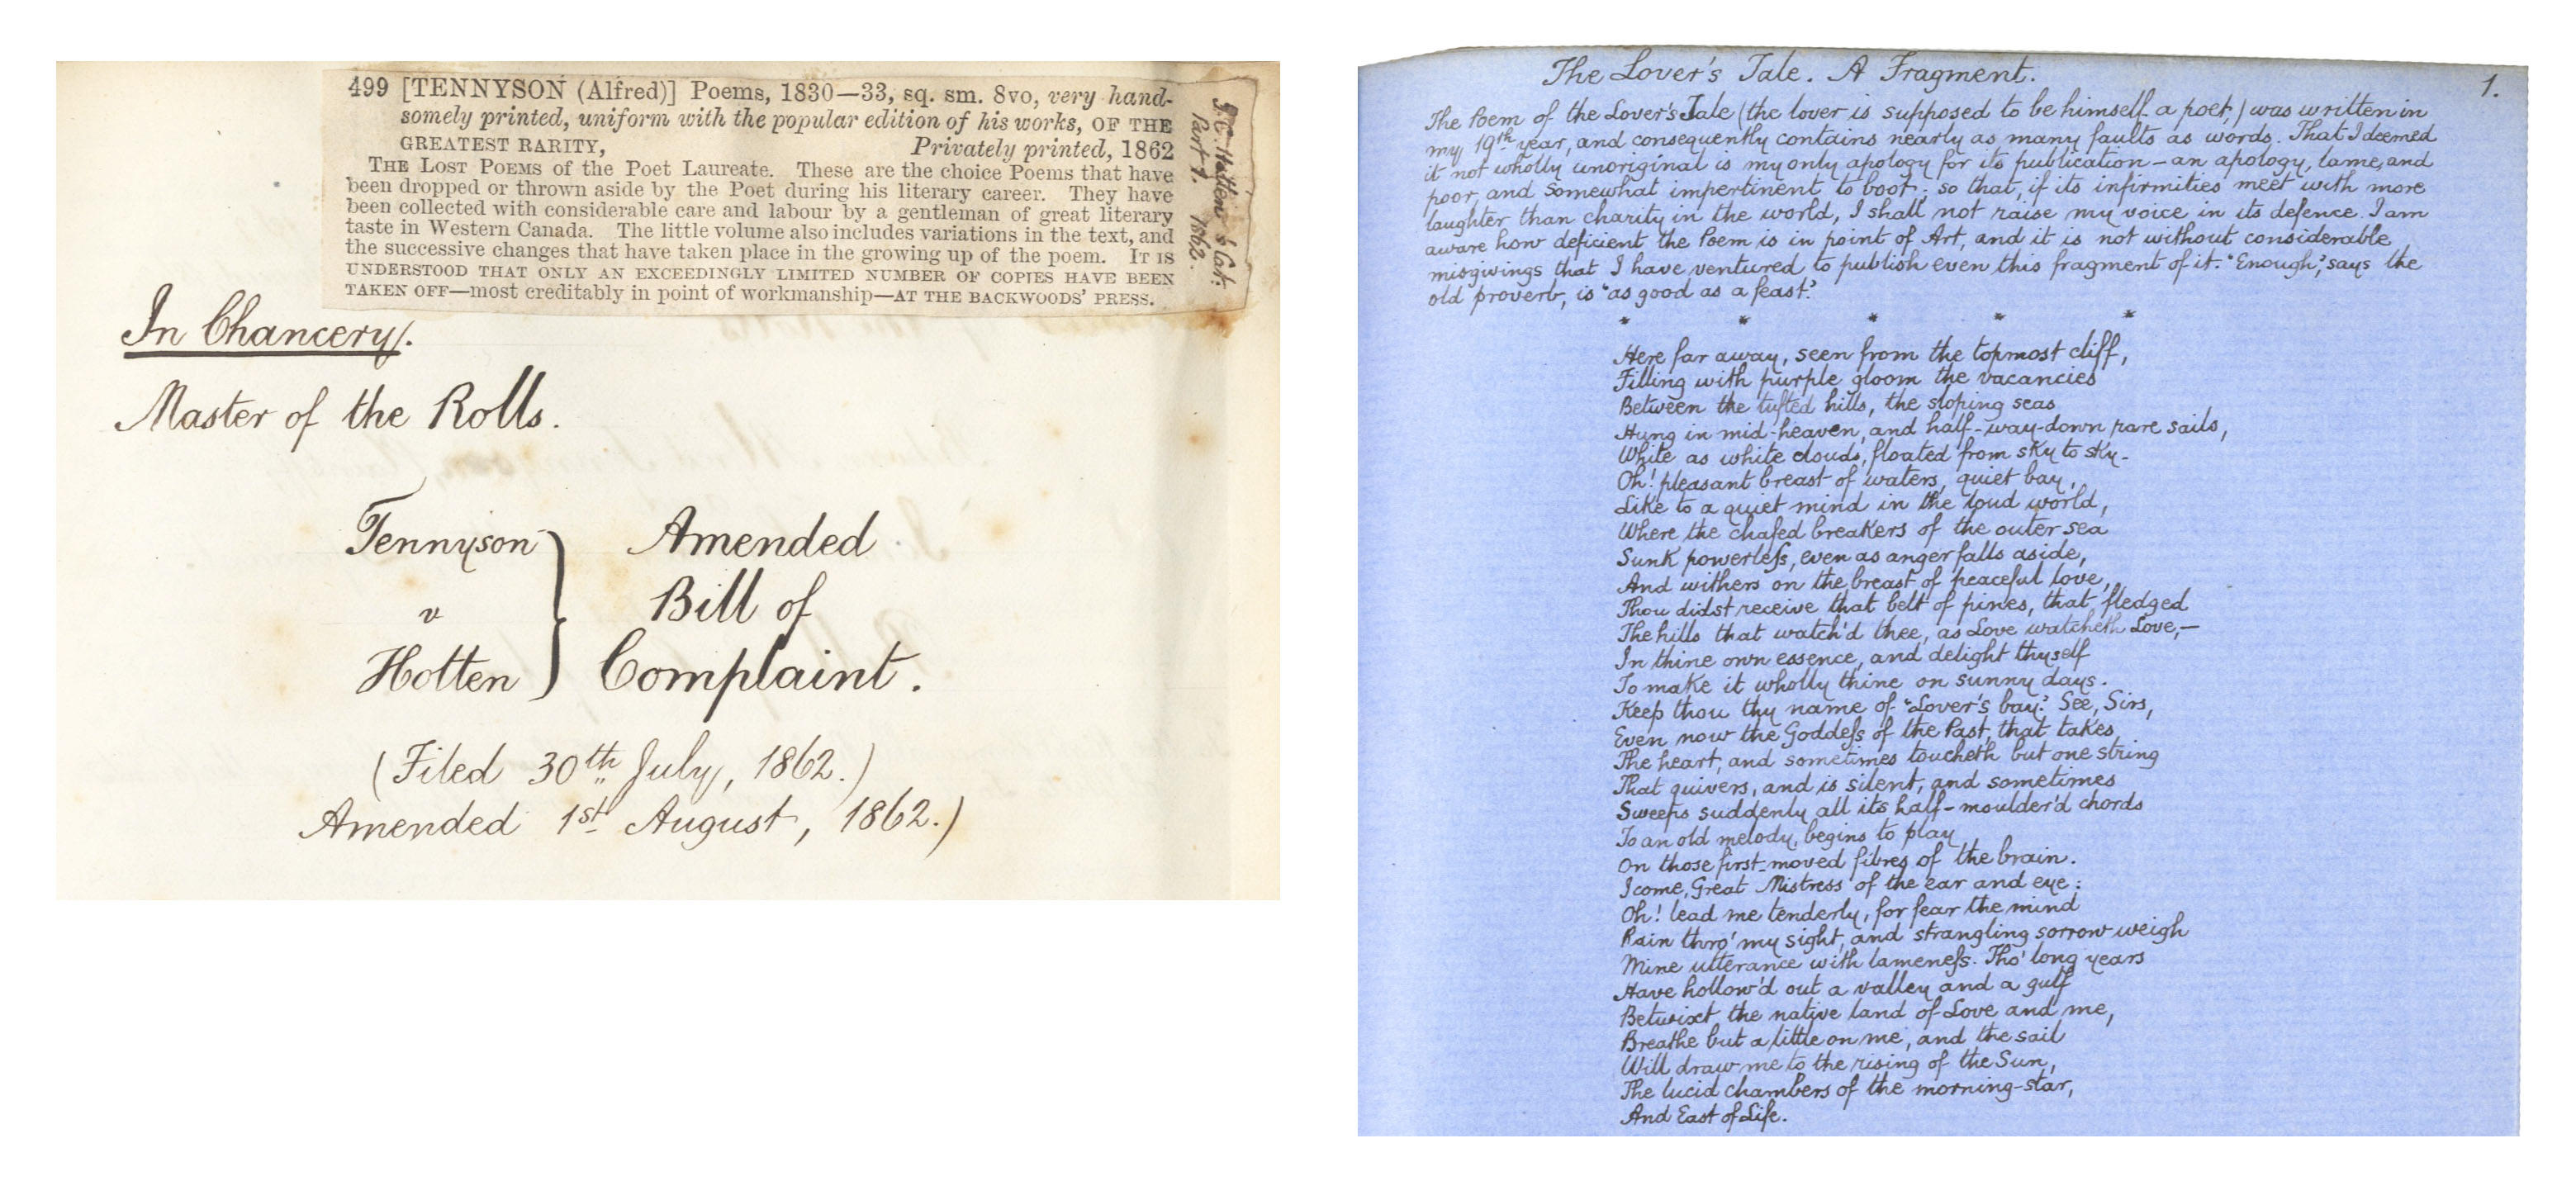 499 [TENNYSON (Alfred)] Poems, 1830—33, sq. sm. 8vo, very hand-
somely printed, uniform with the popular edition of his works, OF THE
GREATEST RARITY, Privately printed, 1862
THE LOST POEMS of the Poet Laureate. These are the choice Poems that have
been dropped or thrown aside by the Poet during his literary career. They have
been collected with considerable care and labour by a gentleman of great literary
taste in Western Canada. The little volume also includes variations in the text, and
the successive changes that have taken place in the growing up of the poem. IT IS
UNDERSTOOD THAT ONLY AN EXCEEDINGLY LIMITED NUMBER OF COPIES HAVE BEEN
TAKEN OFF—most creditably in point of workmanship—AT THE BACKWOODS' PRESS.
J. C. Hotten's Cat:
Part 1. 1862.
In Chancery.
Master of the Rolls.
Tennyson
v
Hotten
Amended
Bill of
Complaint.
(Filed 30th July, 1862.)
Amended 1st August, 1862.)
The Lover's Tale. A Fragment.
1.
The Poem of the Lover's Tale (the lover is supposed to be himself a poet,) was written in
my 19th year, and consequently contains nearly as many faults as words. That I deemed
it not wholly unoriginal is my only apology for its publication—an apology, lame, and
poor, and somewhat impertinent to boot; so that, if its infirmities meet with more
laughter than charity in the world, I shall not raise my voice in its defence. I am
aware how deficient the Poem is in point of Art, and it is not without considerable
misgivings that I have ventured to publish even this fragment of it. "Enough," says the
old proverb, is "as good as a feast."
* * * * *
Here far away, seen from the topmost cliff,
Filling with purple gloom the vacancies
Between the tufted hills, the sloping seas
Hung in mid-heaven, and half-way-down rare sails,
White as white clouds, floated from sky to sky.
Oh! pleasant breast of waters, quiet bay,
Like to a quiet mind in the loud world,
Where the chafed breakers of the outer sea
Sunk powerless, even as anger falls aside,
And withers on the breast of peaceful love,
Thou didst receive that belt of pines, that fledged
The hills that watch'd thee, as Love watcheth Love,—
In thine own essence, and delight thyself
To make it wholly thine on sunny days.
Keep thou thy name of "Lover's bay." See, Sirs,
Even now the Goddess of the Past, that takes
The heart, and sometimes toucheth but one string
That quivers, and is silent, and sometimes
Sweeps suddenly all its half-moulder'd chords
To an old melody, begins to play
On those first-moved fibres of the brain.
I come, Great Mistress of the ear and eye:
Oh! lead me tenderly, for fear the mind
Rain thro' my sight, and strangling sorrow weigh
Mine utterance with lameness. Tho' long years
Have hollow'd out a valley and a gulf
Betwixt the native land of Love and me,
Breathe but a little on me, and the sail
Will draw me to the rising of the Sun,
The lucid chambers of the morning-star,
And East of Life.